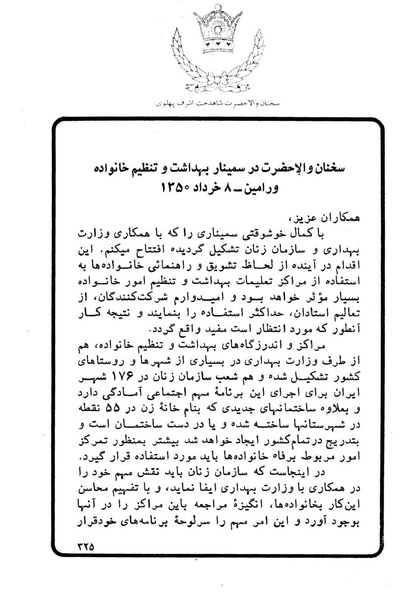 سخنان والاحضرت شاهدخت اشرف پهلوی
سخنان والاحضرت در سمینار بهداشت و تنظیم خانواده
ورامین ــ ۸ خرداد ۱۳۵۰
همکاران عزیز،
با کمال خوشوقتی سمیناری را که با همکاری وزارت
بهداری و سازمان زنان تشکیل گردیده افتتاح میکنم. این
اقدام در آینده از لحاظ تشویق و راهنمائی خانواده‌ها به
استفاده از مراکز تعلیمات بهداشت و تنظیم امور خانواده
بسیار مؤثر خواهد بود و امیدوارم شرکت‌کنندگان، از
تعالیم استادان، حداکثر استفاده را بنمایند و نتیجه کار
آنطور که مورد انتظار است مفید واقع گردد.
مراکز و اندرزگاه‌های بهداشت و تنظیم خانواده، هم
از طرف وزارت بهداری در بسیاری از شهرها و روستاهای
کشور تشکیل شده و هم شعب سازمان زنان در ۱۷۶ شهر
ایران برای اجرای این برنامهٔ مهم اجتماعی آمادگی دارد
و بعلاوه ساختمانهای جدیدی که بنام خانهٔ زن در ۵۵ نقطه
در شهرستانها ساخته شده و یا در دست ساختمان است و
بتدریج در تمام کشور ایجاد خواهد شد بیشتر بمنظور تمرکز
امور مربوط برفاه خانواده‌ها باید مورد استفاده قرار گیرد.
در اینجاست که سازمان زنان باید نقش مهم خود را
در همکاری با وزارت بهداری ایفا نماید، و با تفهیم محاسن
این‌کار بخانواده‌ها، انگیزهٔ مراجعه باین مراکز را در آنها
بوجود آورد و این امر مهم را سرلوحهٔ برنامه‌های خود قرار
۳۲۵